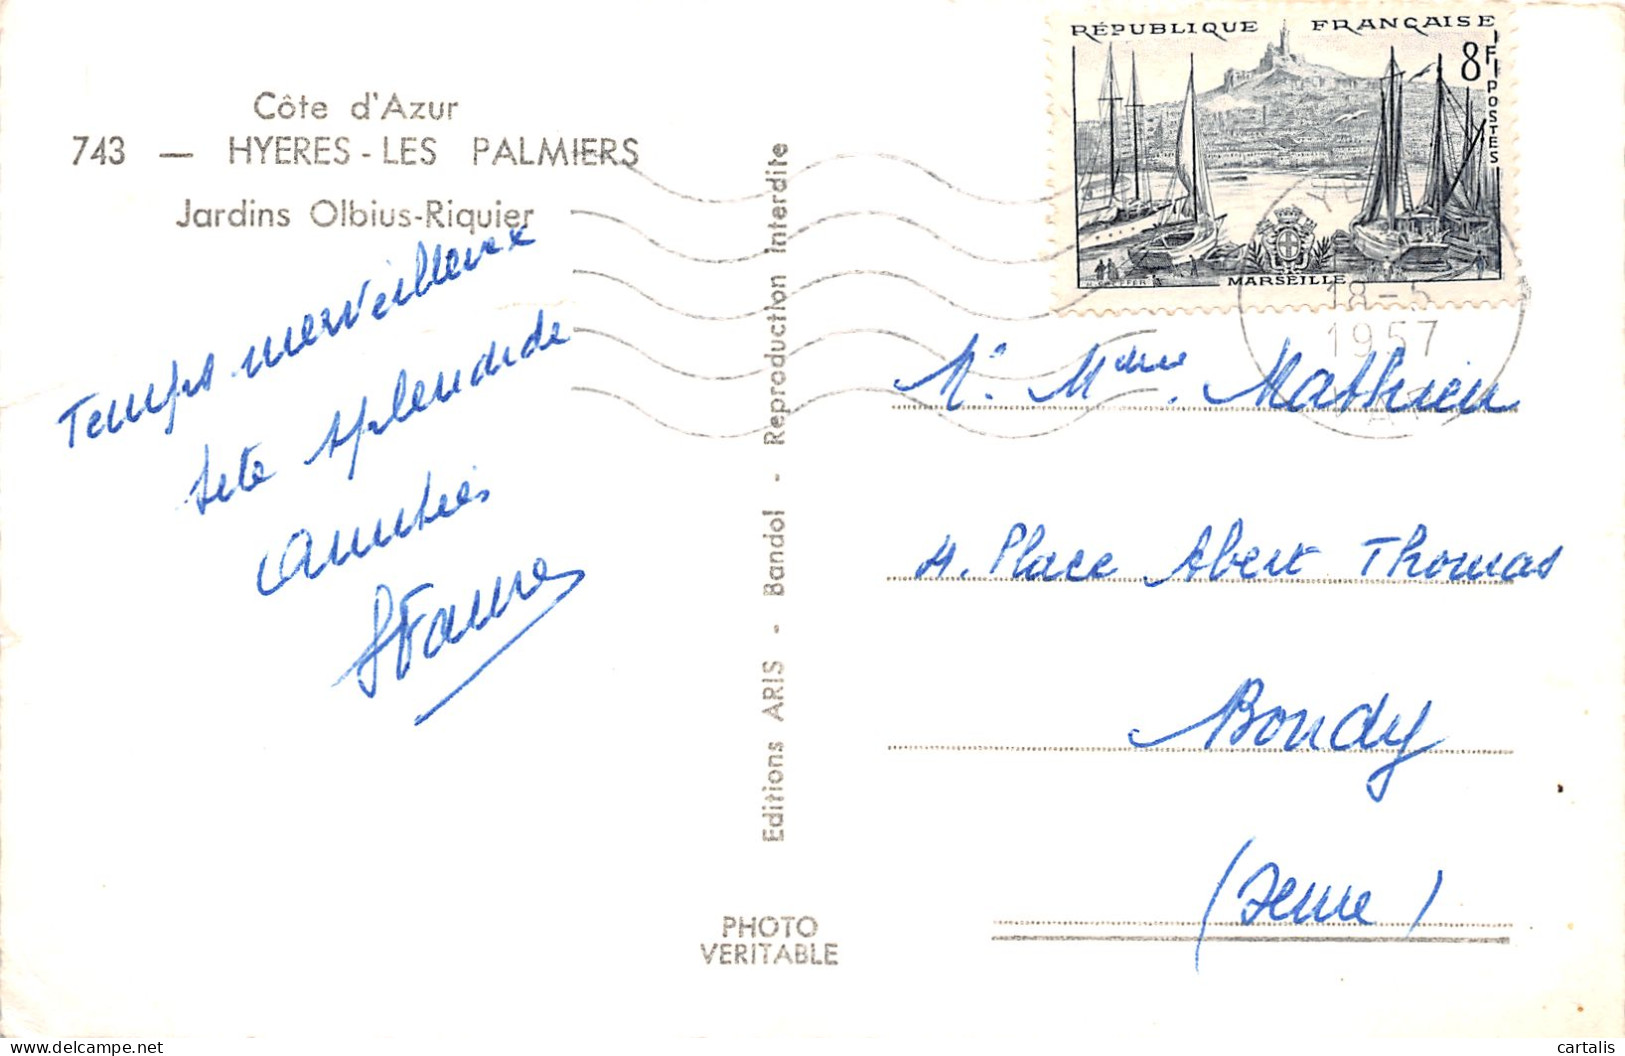 Côte d'Azur
743 — HYERES - LES PALMIERS
Jardins Olbius-Riquier
Temps merveilleux
splendide
Amitiés
Editions ARIS - Bandol - Reproduction Interdite
PHOTO
VERITABLE
RÉPUBLIQUE FRANÇAISE
8F POSTES
MARSEILLE
18-5
1957
VAR
M. Mme. Mathieu
4. Place Albert Thomas
Bondy
(Seine)
cartalis